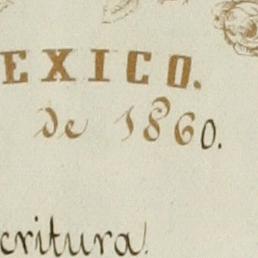 EXICO.
de 1860.
critura.